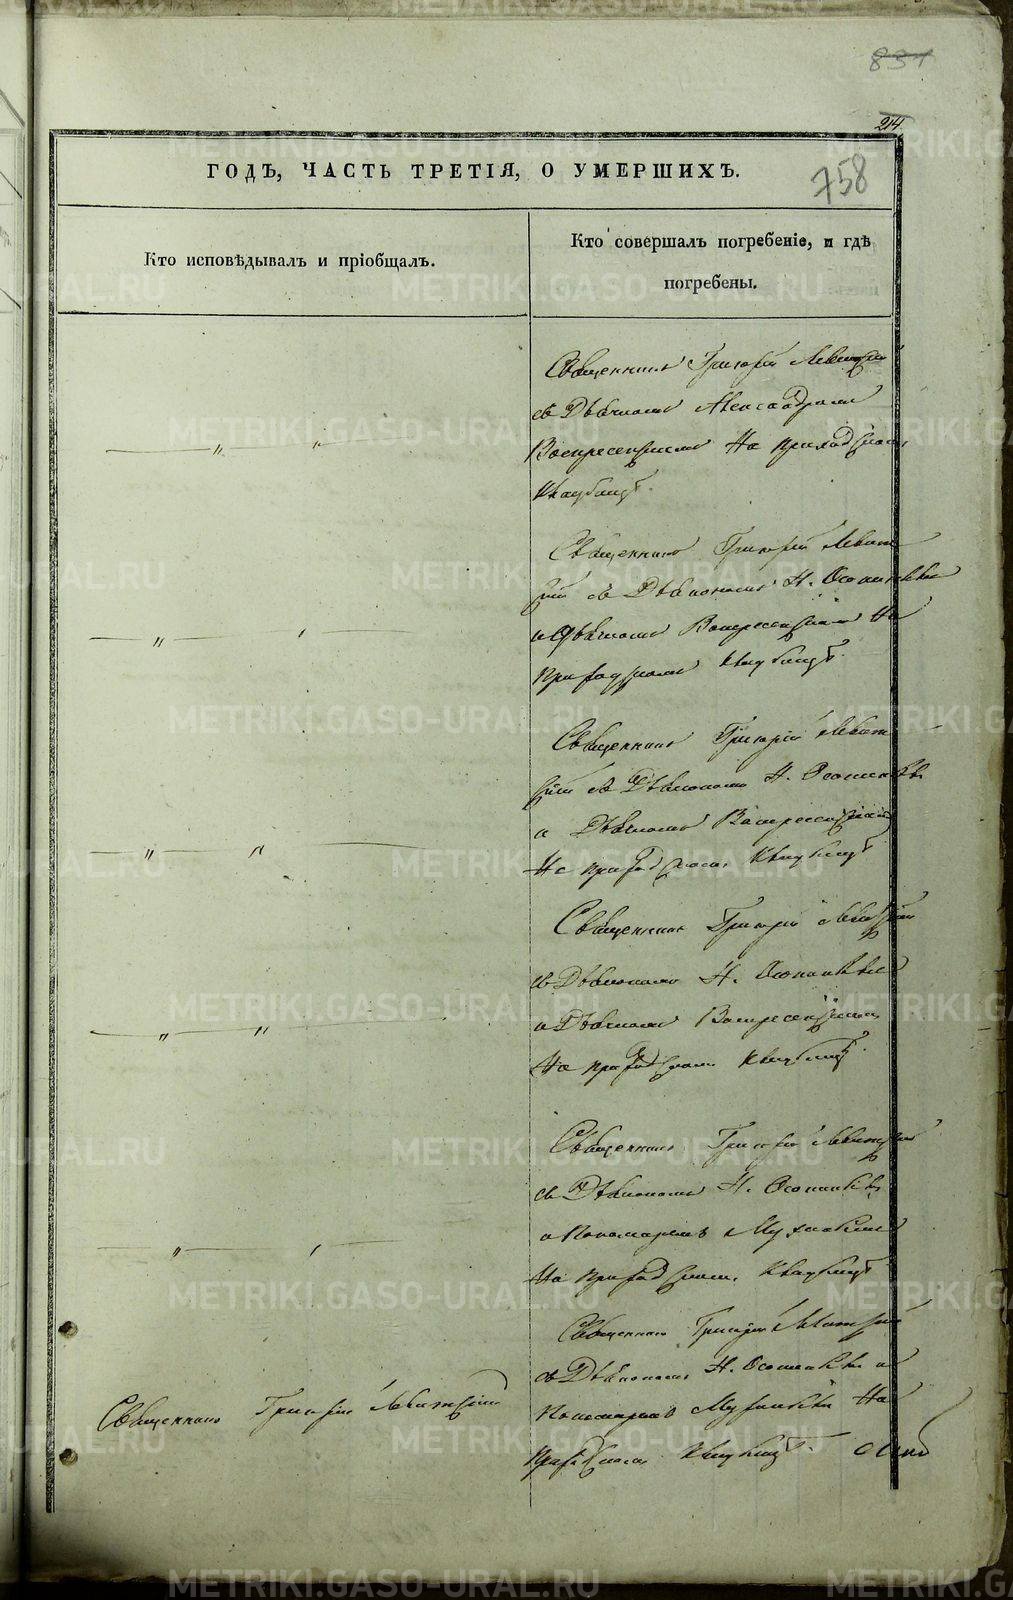 831
214.
ГОДЪ, ЧАСТЬ ТРЕТІЯ, О УМЕРШИХЪ.
758
Кто исповѣдывалъ и пріобщалъ.
Кто совершалъ погребеніе, и гдѣ
погребены.
Священникъ Григорій Левитскій
съ Дьячкомъ Александромъ
Воскресенскимъ На приходскомъ
Кладбищѣ.
Священникъ Григорій Левит
скій съ Діакономъ Н.
и Дьячкомъ Воскресенскимъ На
приходскомъ Кладбищѣ.
Священникъ Григорій Левит
скій съ Діакономъ Н.
и Дьячкомъ Воскресенскимъ
На приходскомъ Кладбищѣ
Священникъ Григорій Левитскій
съ Діакономъ Н.
и Дьячкомъ Воскресенскимъ
На приходскомъ Кладбищѣ.
Священникъ Григорій Левитскій
съ Діакономъ Н.
и Пономаремъ
На приходскомъ Кладбищѣ
Священникъ Григорій Левитскій
съ Діакономъ Н. и
Священникъ Григорій Левитскій
Пономаремъ На
приходскомъ Кладбищѣ.
METRIKI.GASO-URAL.RU